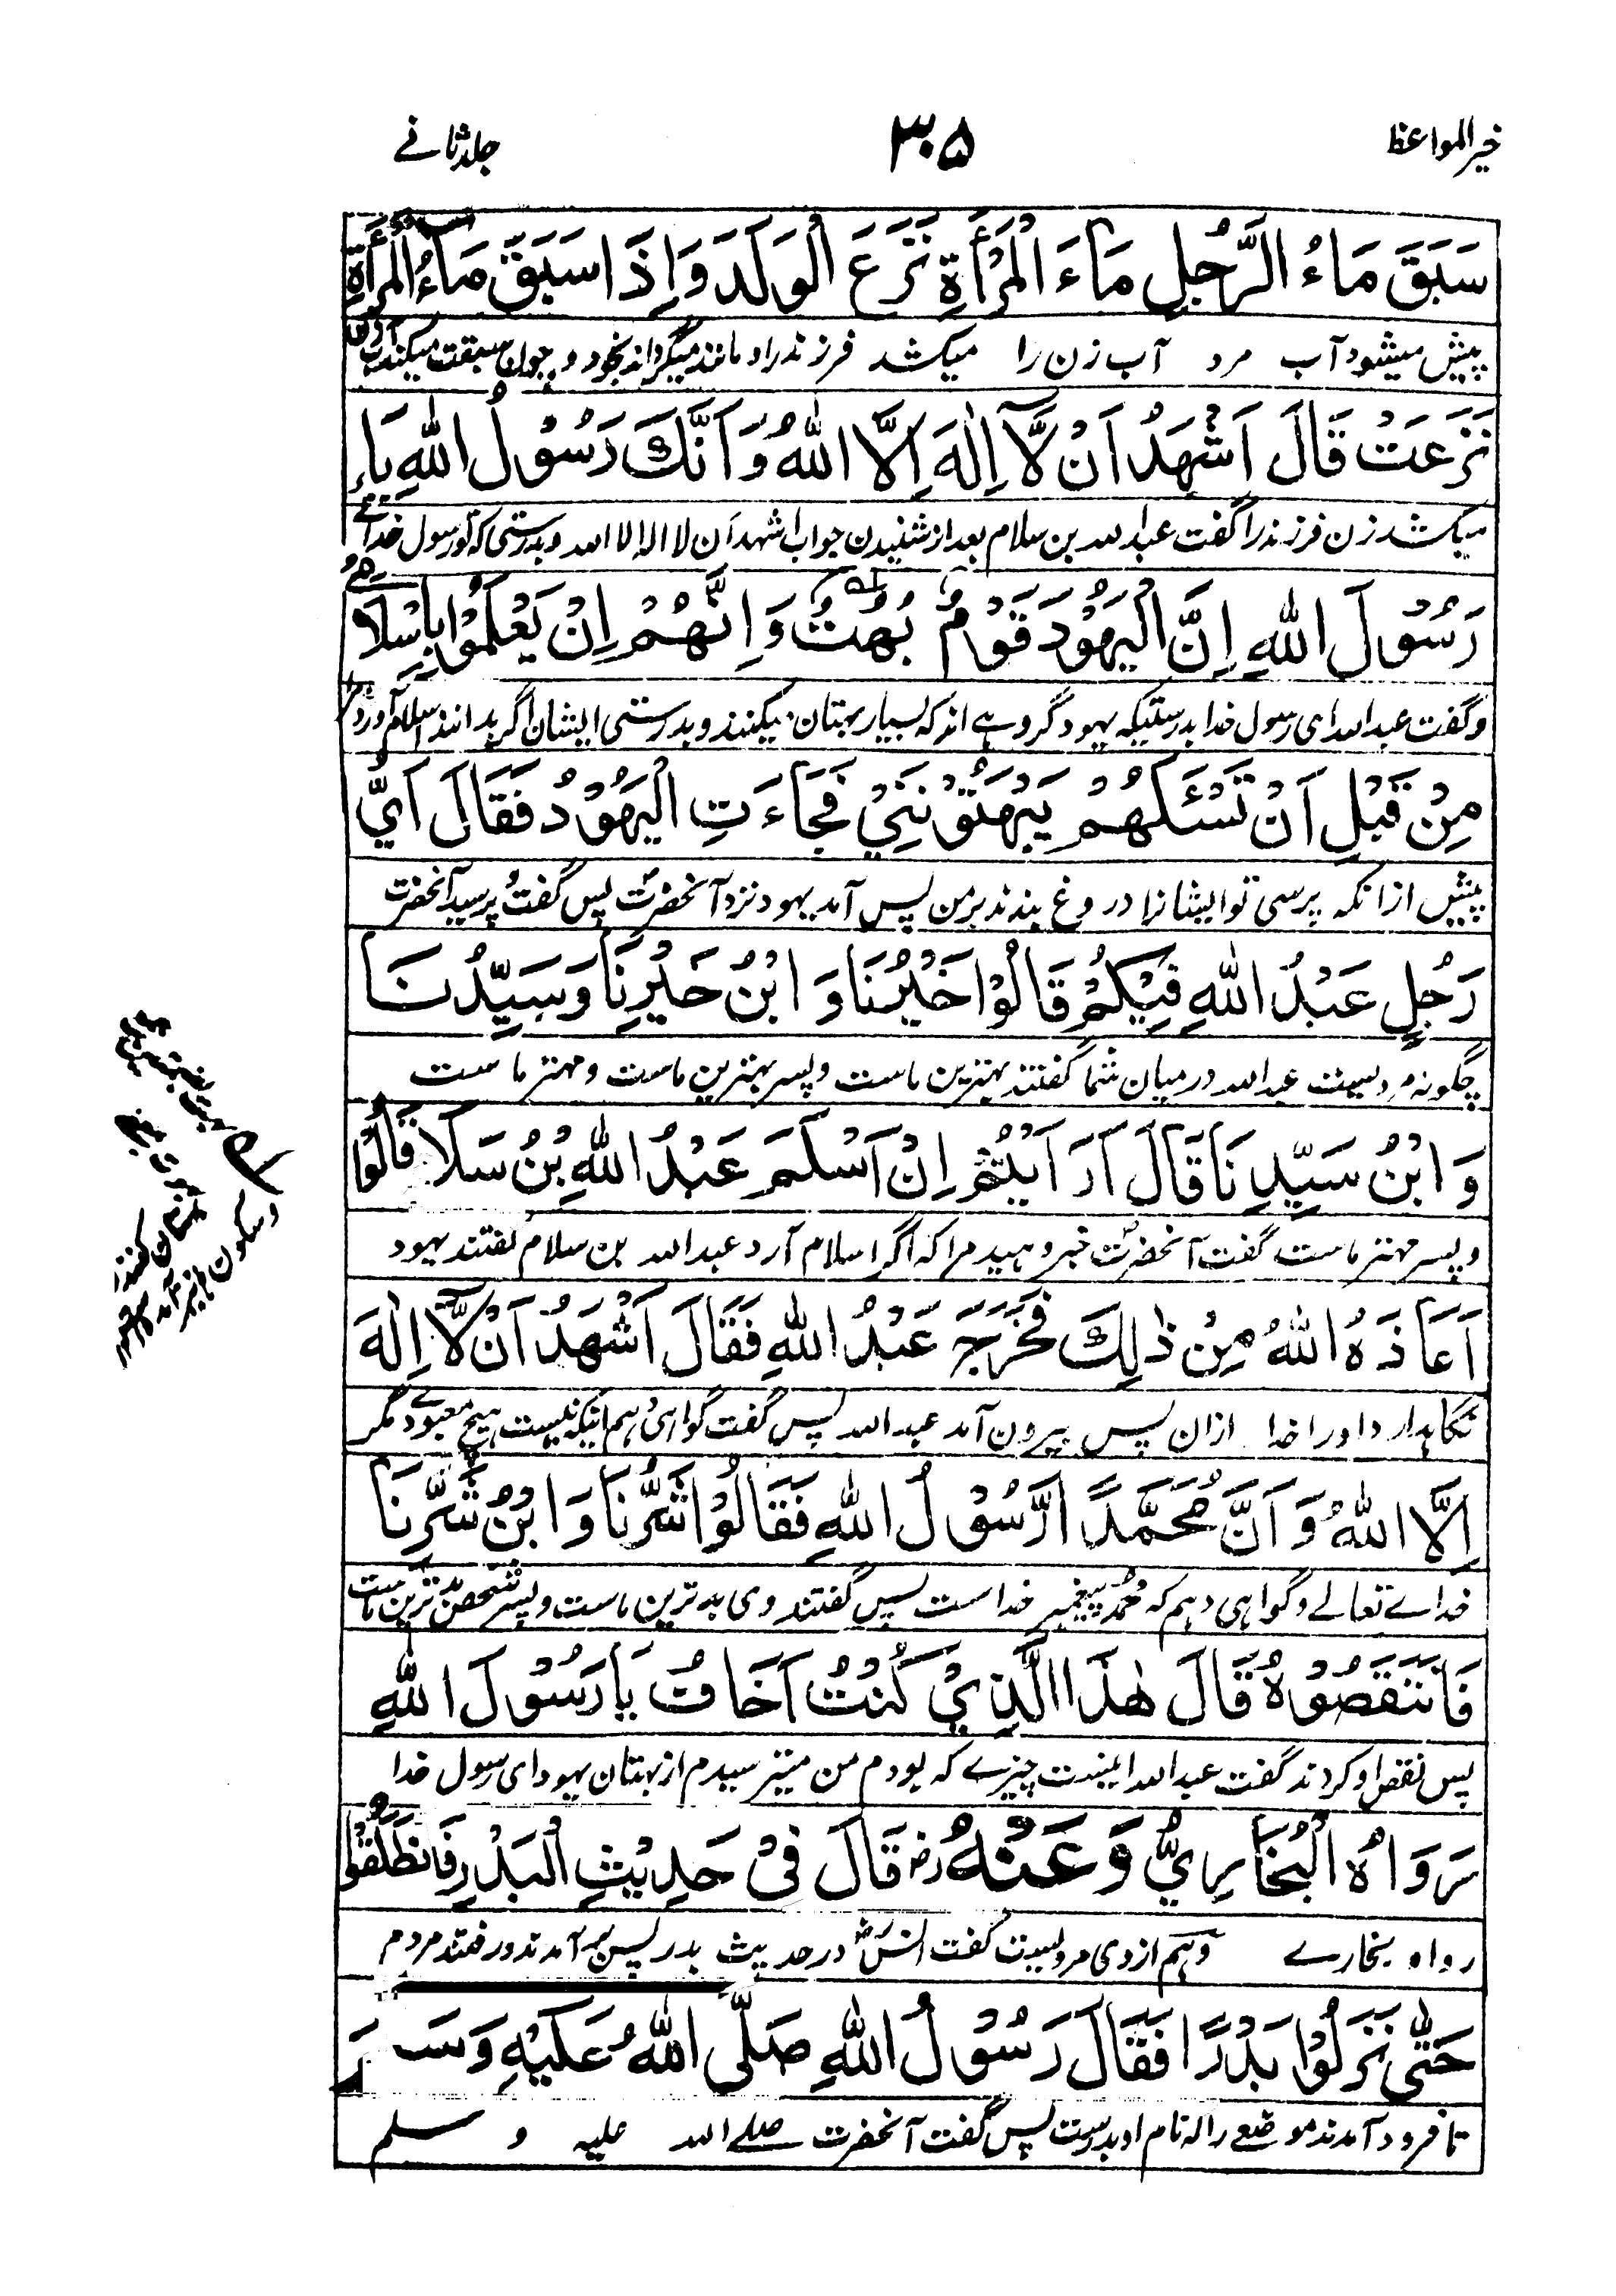 خير المواعظ
٣٠٥
جلد ثانے
سَبَقَ مَاءُ الرَّجُلِ مَاءَ الْمَرْأَةِ نَزَعَ الْوَلَدَ وَاِذَا سَبَقَ مَاءُ الْمَرْأَةِ
پیش میشود آب مرد آب زن را میکشد فرزند را و مانند میگرداند بخود و چون سبقت میکند آب زن
نَزَعَتْ قَالَ اَشْهَدُ اَنْ لَّآ اِلٰهَ اِلَّا اللّٰهُ وَاَنَّكَ رَسُوْلُ اللّٰهِ يَا
میکشد زن فرزند را گفت عبد الله بن سلام بعد از شنیدن جواب اشهد ان لا اله الا الله و بدرستی که تو رسول خدائے
رَسُوْلَ اللّٰهِ اِنَّ الْيَهُوْدَ قَوْمٌ بُهْتٌ وَاِنَّهُمْ اِنْ يَعْلَمُوْا بِاِسْلَامِيْ
و گفت عبد الله ای رسول خدا بدرستیکه یهود گروہے اند که بسیار بهتان میکنند و بدرستی ایشان اگر بدانند اسلام آوردن
مِنْ قَبْلِ اَنْ تَسْئَلَهُمْ يَبْهَتُوْنَنِيْ فَجَاءَتِ الْيَهُوْدُ فَقَالَ اَيُّ
پیش از انکه پرسی تو ایشانرا دروغ بندند بر من پس آمد یهود نزد آنحضرت پس گفت و پرسید آنحضرت
رَجُلٍ عَبْدُ اللّٰهِ فِيْكُمْ قَالُوْا خَيْرُنَا وَ ابْنُ خَيْرِنَا وَسَيِّدُنَا
چگونه مردیست عبد الله در میان شما گفتند بهترین ماست و پسر بهترین ماست و مهتر ماست
وَ ابْنُ سَيِّدِنَا قَالَ اَرَاَيْتُمْ اِنْ اَسْلَمَ عَبْدُ اللّٰهِ بْنُ سَلَامٍ قَالُوْا
و پسر مهتر ماست گفت آنحضرت خبر دهید مرا که اگر اسلام آرد عبد الله بن سلام گفتند یهود
اَعَاذَهُ اللّٰهُ مِنْ ذٰلِكَ فَخَرَجَ عَبْدُ اللّٰهِ فَقَالَ اَشْهَدُ اَنْ لَّآ اِلٰهَ
نگاهدارد او را خدا ازان پس بیرون آمد عبد الله پس گفت گواهی دهم اینکه نیست هیچ معبودے مگر
اِلَّا اللّٰهُ وَ اَنَّ مُحَمَّدًا رَّسُوْلُ اللّٰهِ فَقَالُوْا شَرُّنَا وَ ابْنُ شَرِّنَا
خداے تعالے و گواهی دهم که محمد پیغمبر خداست پس گفتند وی بدترین ماست و پسر شخص بدترین ماست
فَانْتَقَصُوْهُ قَالَ هٰذَا الَّذِيْ كُنْتُ اَخَافُ يَا رَسُوْلَ اللّٰهِ
پس نقص او کردند گفت عبد الله اینست چیزے که بودم من میترسیدم از بهتان یهود ای رسول خدا
رَوَاهُ الْبُخَارِيُّ وَعَنْهُ رض قَالَ فِيْ حَدِيْثِ الْبَدْرِ فَانْطَلَقُوْا
رواه بخارے و هم ازوی مرویست گفت انس در حدیث بدر پس برآمدند و رفتند مردم
حَتّٰى نَزَلُوْا بَدْرًا فَقَالَ رَسُوْلُ اللّٰهِ صَلَّى اللّٰهُ عَلَيْهِ وَسَلَّمَ
تا فرود آمدند موضعے را که نام او بدرست پس گفت آنحضرت صلے الله علیه و سلم